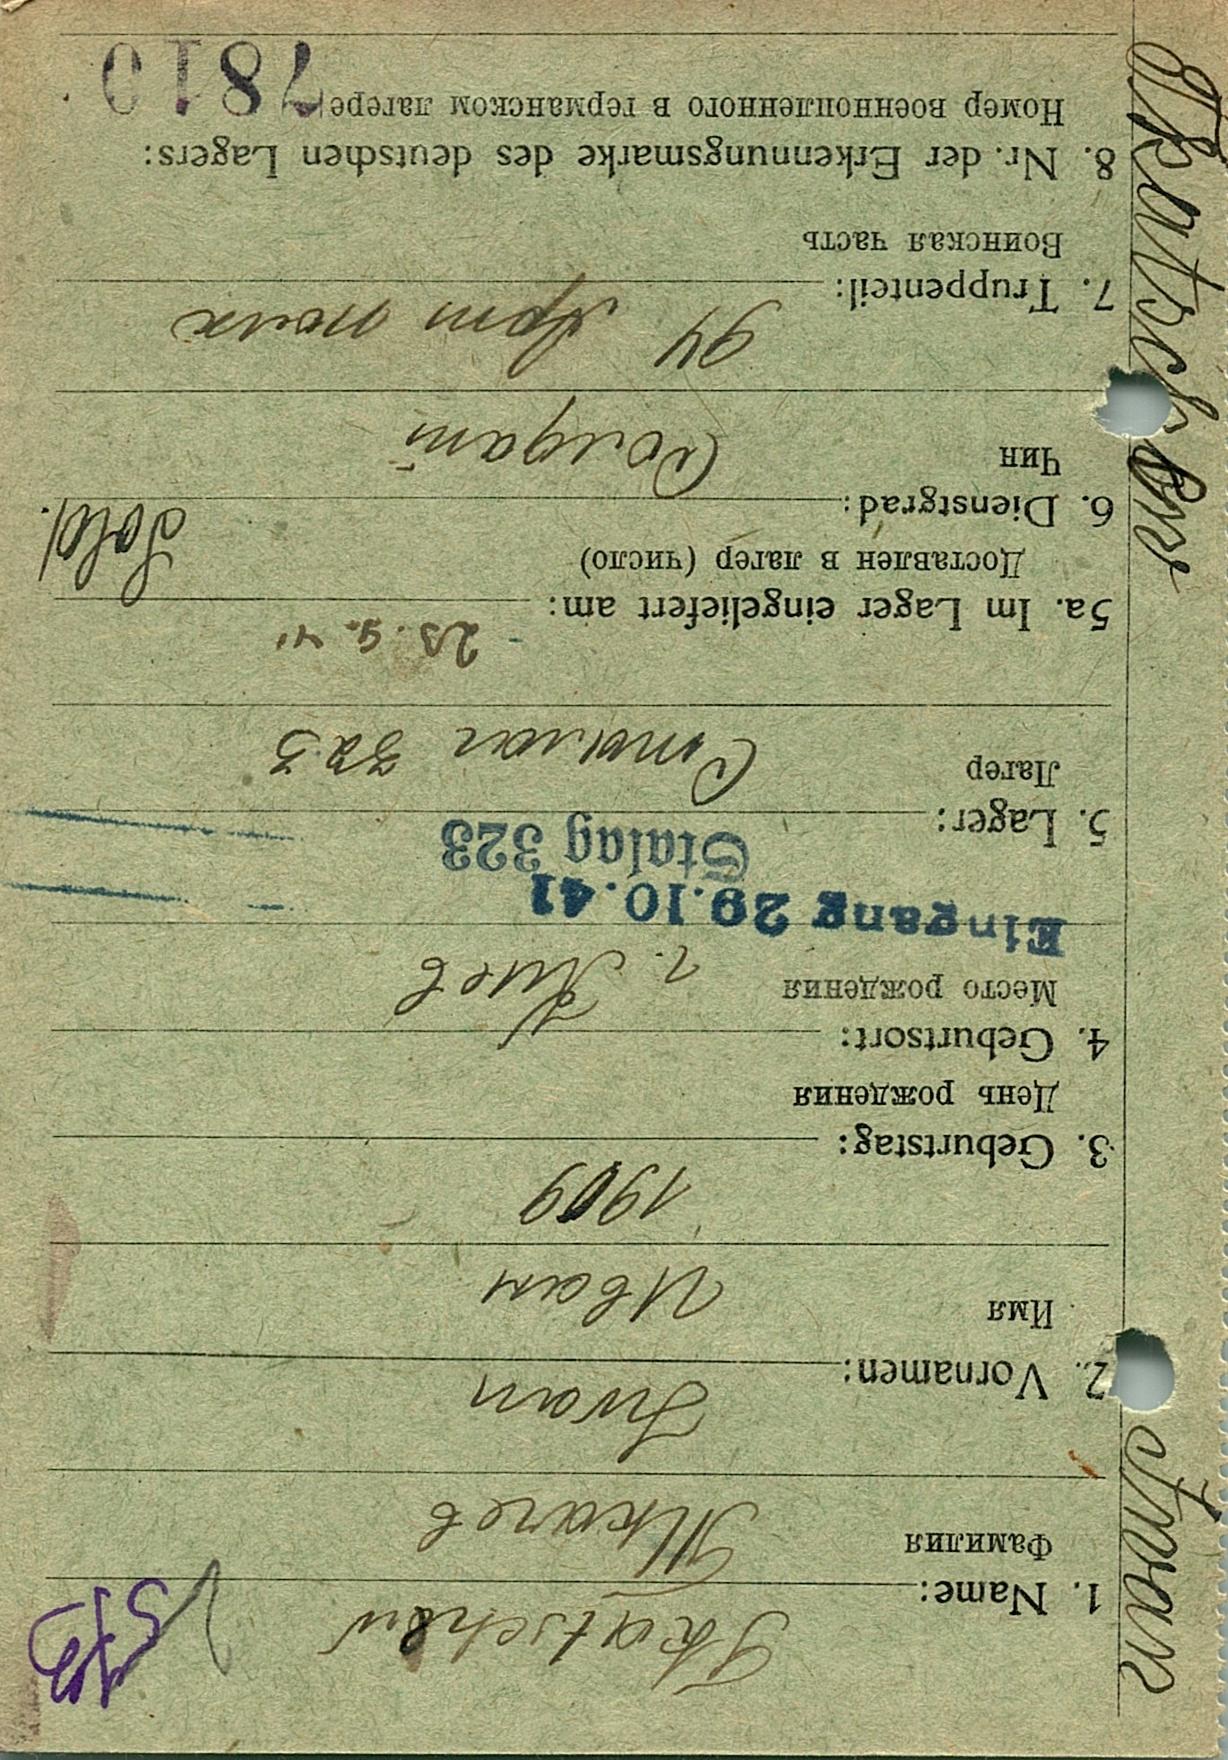 Tkatschew Iwan
1. Name: Tkatschew
Фамилия Ткачев
2. Vornamen: Iwan
Имя Иван
1909
3. Geburtstag:
День рождения
4. Geburtsort:
Место рождения г. Киев
Eingang 29.10.41
Stalag 323
5. Lager:
Лагер Сталаг 323
5a. Im Lager eingeliefert am: 25.9.41
Доставлен в лагер (число)
Sold.
6. Dienstgrad:
Чин Солдат
94 Арт полк
7. Truppenteil:
Воинская часть
8. Nr. der Erkennungsmarke des deutschen Lagers:
Номер военнопленного в германском лагере 7810